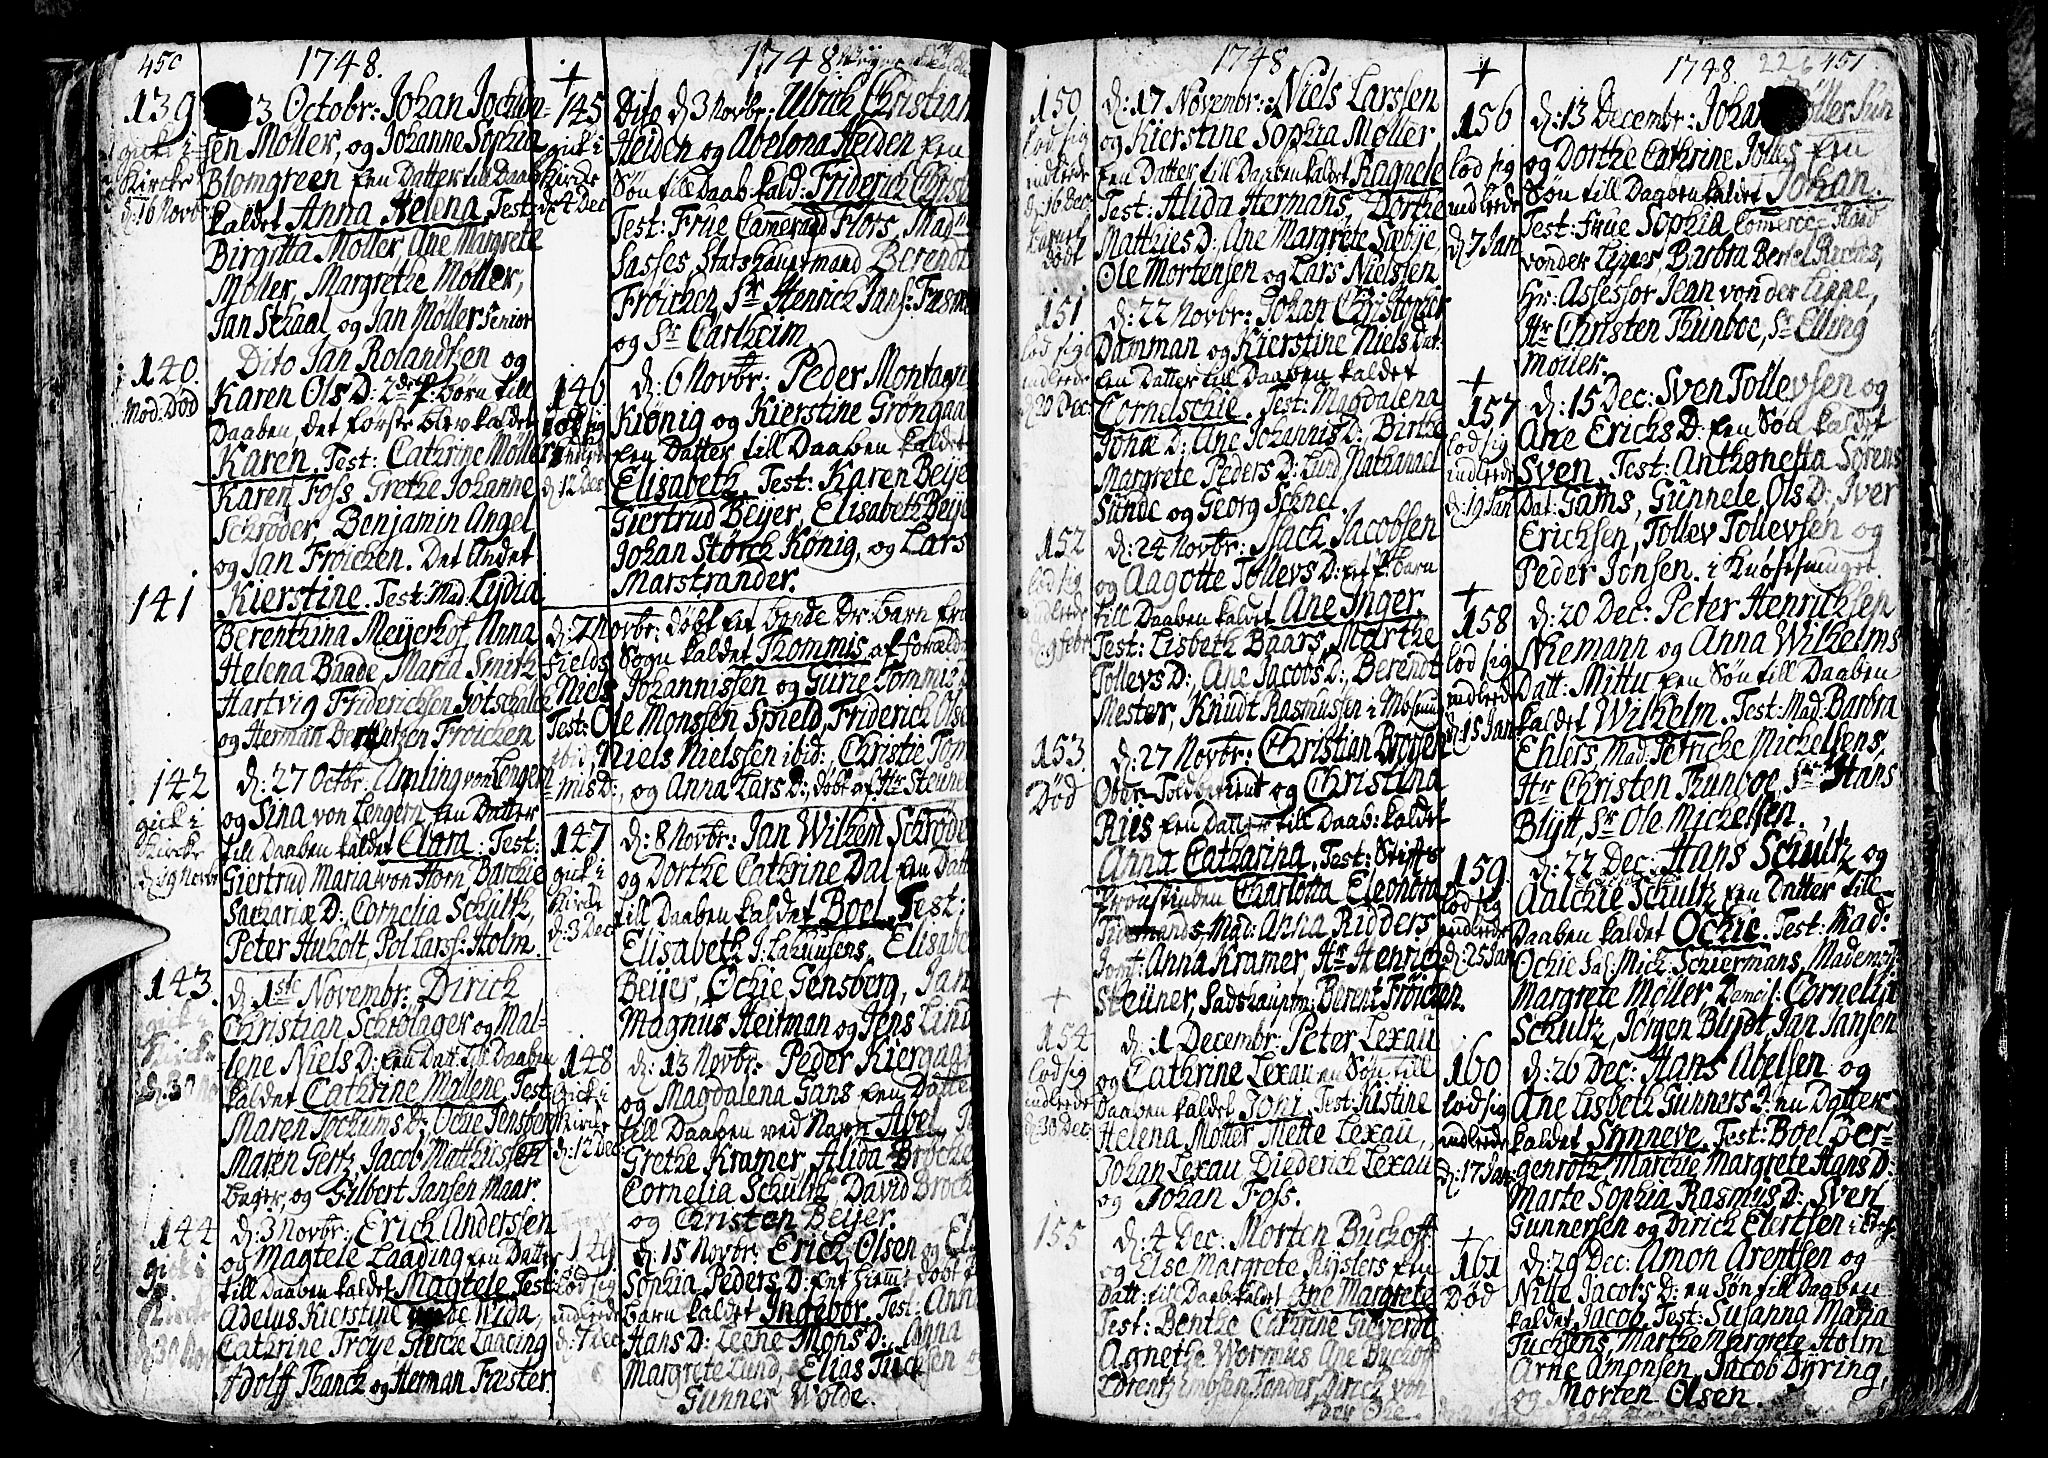 450
1748.
139
gick i
Kircke
d: 16 Novbr
3 Octobr: Johan Jochum-
sen Møller, og Johanne Sophia
Blomgreen een Datter till Daab
kaldet Anna Helena. Test:
Birgitta Møller, Ane Margrete
Møller, Margrethe Møller,
Jan Schaal og Jan Møller Senior
140.
Mod. Død
Dito Jan Rolandtsen og
Karen Ols D: 2de Børn till
Daaben, det første blev kaldet
Karen. Test: Cathrine Møller
Karen Foss, Grethe Johanne
Schrøder, Benjamin Angel
og Jan Frøichen. Det Andet
141
Kierstine. Test: Mad. Lydia
Berenthina Meyerhof, Anna
Helena Baade, Maria Smith
Hartvig Friderichsen Gotschalck
og Herman Berntzen Frøichen
142
gick i
Kircke
d: 19 Novbr
d: 27 Octbr: Amling von Lengern
og Sina von Lengern een Datter
till Daaben kaldet Clara. Test:
Giertrud Maria von Horn Barchie
Sachariæ D: Cornelia Schultz,
Peter Huholt, Pol Larss: Holm.
143.
gick i
Kircke
d: 30 No
d: 1ste Novembr: Dirich
Christian Schrølager og Mal-
lene Niels D: een Dat: till Daaben
kaldet Cathrine Mallene. Test:
Maren Jochums D: Ochie Jensberg
Maren Gertz, Jacob Matthiessen
Bager, og Gilbert Jansen Maar.
144
gick i
Kircke
d: 30 Nov
d: 3 Novbr: Erich Anderssen
og Magtele Laading een Datter
till Daaben kaldet Magtele. Test:
Adelus Kierstine Wida,
Cathrine Trøye Giercke Laading
Adolff Thanck og Herman Fæster.
1748
145
gick i
Kircke
d: 4 Dec
Dito d: 3 Novbr: Ulrich Christian
Heiden og Abelona Heiden een
Søn till Daab kald: Friderich Christi
Test: Frue Cammerraad Flors, Mad:
Sasses, Statshauptmand Berendt
Frøichen, Sr Henrich Janss: Fasmer
og Sr Carlheim.
146
lod sig
indlede
d: 12 Dec
d: 6 Novbr: Peder Montagn
Kiønig og Kierstine Grøngaa
een Datter till Daaben kaldet
Elisabeth. Test: Karen Beyer
Giertrud Beyer, Elisabeth Beye
Johan Størch König, og Lars
Marstrander.
d: 7 Novbr: døbt et bønde Dr: barn fra
Fields Sogn kaldet Thommis af forældr
Niels Johannissen og Gurie Tommis
Test: Ole Monssen Spield, Friderich Olse
ibid, Niels Nielssen ibid: Christie Tom
mis D:, og Anna Lars D:, døbt af Hr Steuner
147
gick i
Kircke
d: 3 Dec
d: 8 Novbr: Jan Wilhem Schrøder
og Dorthe Cathrine Dal een Datt
till Daaben kaldet Boel. Test:
Elisabeth J: Lahuusens, Elisabet
Beijer, Ochie Gensberg, Jan
Magnus Heitman og Jens Lind
148
gick i
Kircke
d: 12 Dec
d: 13 Novbr: Peder Kiergaa
og Magdalena Gans een Datter
till Daaben ved Navn Abel. T
Grethe Kramer, Alida Brocke
Cornelia Schultz, David Broch
og Christen Beijer.
149
lod sig
indlede
d: 7 Dec
d: 15 Novbr: Erich Olsen og El
Sophia Peders D: eet hiemme døbt
barn kaldet Ingebor. Test: Anne
Hans D: Leene Mons D:, Anna
Margrete Lund, Elias Tuchsen
Gunner Wolde.
1748
150
lod sig
indlede
d: 16 Dec
barnet
døbt
d: 17 Novembr: Niels Larssen
og Kierstine Sophia Møller
een Datter till Daaben kaldet Ragnele
Test: Alida Hermans, Dorthe
Matthies D: Ane Margrete Sæbye,
Ole Mortensen og Lars Nielssen
151
lod sig
indlede
d: 20 Dec
d: 22 Novbr: Johan Christopher
Damman og Kierstine Niels Dat:
een Datter till Daaben kaldet
Cornelschie. Test: Magdalena
Jonæ D: Ane Johannis D: Birthe
Margrete Peders D: Lund, Nathanael
Sunde og Georg Schnel.
152
lod sig
indlede
d: 24 Novbr: Isach Jacobsen
og Aagotte Tollevs D: eet barn
till Daaben kaldet Ane Inger.
Test: Lisbeth Baars, Marthe
Tollevs D: Ane Jacobs D: Berendt
Mester, Knudt Rasmussen i
153
Død
d: 27 Novbr: Christian Broyer
Ober-Toldbetient og Christina
Ries een Datter till Daab: kaldet
Anna Catharina. Test: Stiffts
Provstinden Charlotta Eleonora
Tidemands Mad: Anna Ridders
Jomf: Anna Kramer, Hr Henrich
Steuner, Stadshauptm: Berent Frøichen.
154
lod sig
indlede
d: 30 Dec
d: 1 Decembr: Peter Lexau
og Cathrine Lexau en Søn till
Daaben kaldet Joni. Test: Kistine
Helena Møller Mette Lexau,
Johan Lexau, Diederich Lexau
og Johan Foss.
155
d: 4 Dec: Morten Buchoff
og Else Margrete Rüyslers een
Datt: till Daab kaldet Ane Margrete
Test: Benthe Cathrine Gieverdt,
Agnethe Wormus Ane Buchoff
Lorentz Jmbsen Tønder, Dirich von
der Ohe.
1748. 226 451
156
lod sig
indlede
d: 7 Jan
d: 13 Decembr: Johan Møller Jun
og Dorthe Cathrine Jolles een
Søn till Daaben kaldet Johan.
Test: Frue Sophia Commerce Raad
vonder Lippes, Barbra Bertel
Hr: Assessor Jean von der Lippe,
Hr Christen Thunboe, Sr Elling
Møller.
157
lod sig
indlede
d: 19 Jan
d: 15 Dec: Sven Tollevsen og
Ane Erichs D: een Søn kaldet
Sven. Test: Anthonetta Sørens
Dat: Gams, Gunnele Ols D: Iver
Erichsen, Tollev Tollevsen og
Peder Jonsen. i Knøsesmuget.
158
lod sig
indlede
d: 15 Jan
d: 20 Dec: Peter Henrichsen
Niemann og Anna Wilhelms
Datt: Mittu een Søn till Daaben
kaldet Wilhelm. Test: Mad: Barbra
Ehlers, Mad: Petriche Michelsens,
Hr Christen Thunboe, Sr Hans
Blytt, Sr Ole Michelsen.
159
lod sig
indlede
d: 25 Jan
d: 22 Dec: Hans Schultz og
Aalchie Schultz een Datter till
Daaben kaldet Ochie. Test: Mad:
Ochie Sal: Mich: Schiermans, Mademois:
Margrete Møller, Demois: Cornelia
Schultz, Jørgen Blydt, Jan Jansen
160
lod sig
indlede
d: 17 Jan
d: 26 Dec: Hans Abelsen og
Ane Lisbeth Gunners D: en Datter
kaldet Synneve. Test: Boel Ber-
genroth, Marchie Margrete Hans D:
Marte Sophia Rasmus D: Svert
Gunnersen og Dirich Elertsen
161
Død
d: 29 Dec: Amon Arentsen og
Nille Jacobs D: en Søn till Daaben
kaldet Jacob. Test: Susanna Maria
Tuchsens, Marthe Margrete Holm
Arne Amonsen, Jacob Dyring,
og Morten Olsen.